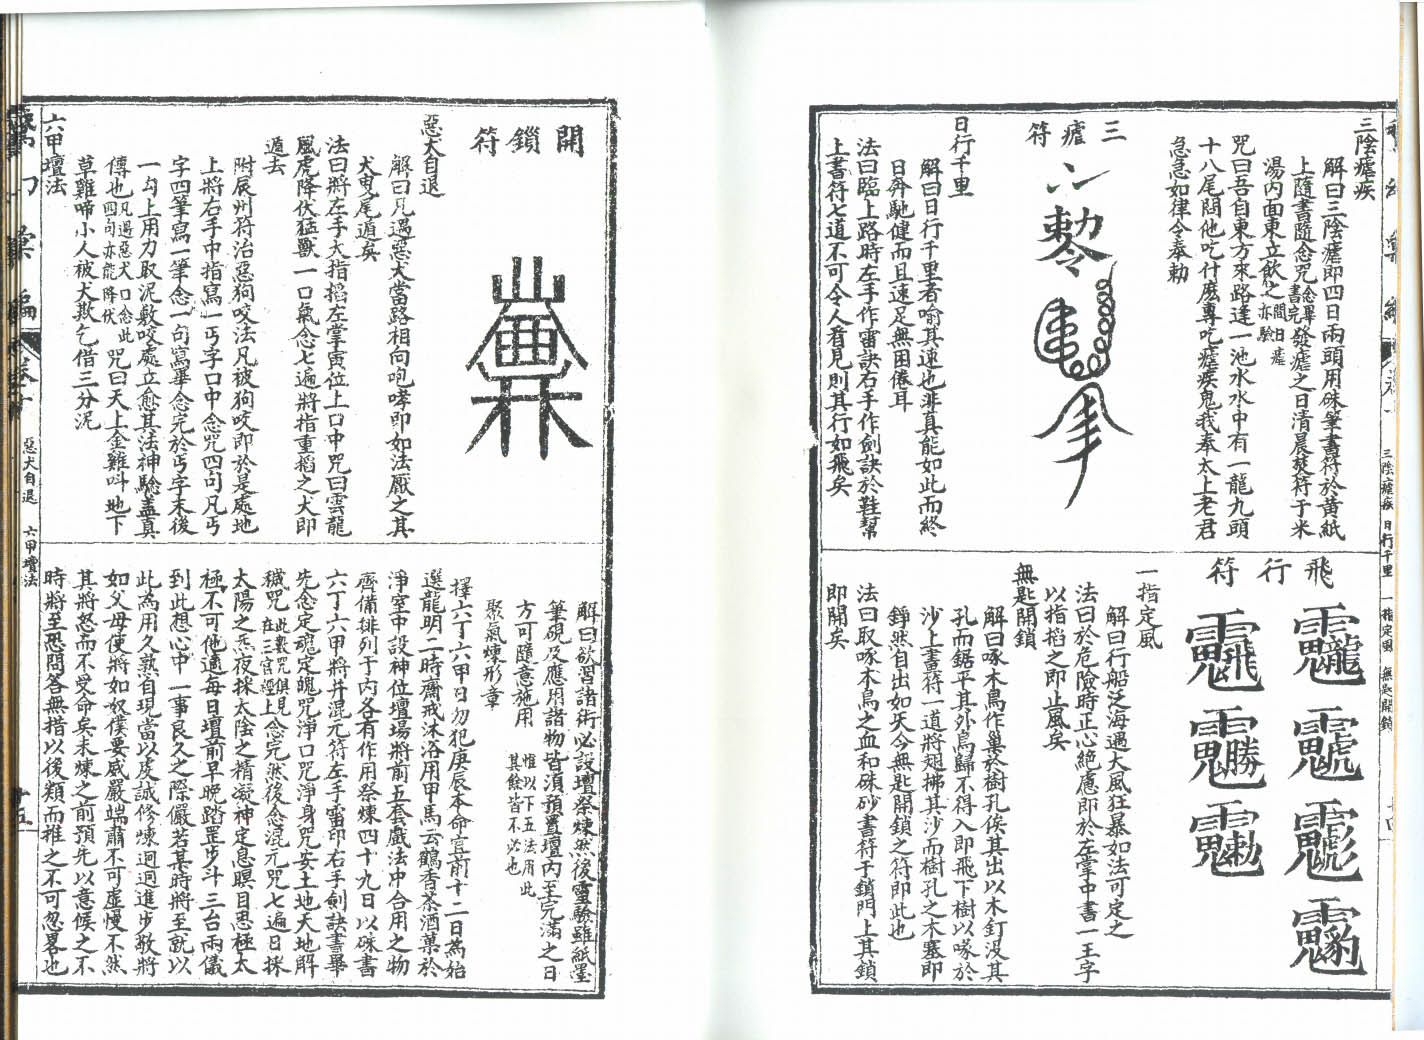 三陰瘧疾
解曰三陰瘧即四日兩頭用硃筆書符於黃紙
上隨書隨念咒念畢書完發瘧之日清晨焚符于米
湯內面東立飲之間日瘧亦驗
咒曰吾自東方來路逢一池水水中有一龍九頭
十八尾問他吃什麽專吃瘧疾鬼我奉太上老君
急急如律令奉勅
三瘧符
日行千里
解曰日行千里者喻其速也非真能如此而終
日奔馳健而且速足無困倦耳
法曰臨上路時左手作雷訣右手作劍訣於鞋幫
上書符七道不可令人看見則其行如飛矣
飛行符
一指定風
解曰行船泛海遇大風狂暴如法可定之
法曰於危險時正心絶慮即於左掌中書一王字
以指搯之即止風矣
無匙開鎖
解曰啄木鳥作巢於樹孔俟其出以木釘没其
孔而鋸平其外鳥歸不得入即飛下樹以喙於
沙上畫符一道將翅拂其沙而樹孔之木塞即
錚然自出如矢今無匙開鎖之符即此也
法曰取啄木鳥之血和硃砂書符于鎖門上其鎖
即開矣
三陰瘧疾 日行千里 一指定風 無匙開鎖
十四
開鎖符
惡犬自退
解曰凡遇惡犬當路相向咆哮即如法厭之其
犬曳尾遁矣
法曰將左手大指搯左掌寅位上口中咒曰雲龍
風虎降伏猛獸一口氣念七遍將指重搯之犬即
遁去
附辰州符治惡狗咬法凡被狗咬即於是處地
上將右手中指寫一丏字口中念咒四句凡丏
字四筆寫一筆念一句寫畢念完於丏字末後
一勾上用力取泥敷咬處立愈其法神騐盖真
傳也凡遇惡犬口念此四句亦能降伏 咒曰天上金雞呌地下
草雞啼小人被犬欺乞借三分泥
六甲壇法
解曰欲習諸術必設壇祭煉然後靈驗雖紙墨
筆硯及應用諸物皆須預置壇内至完滿之日
方可隨意施用 惟以下五法用此其餘皆不必也
聚氣煉形章
擇六丁六甲日勿犯庚辰本命宜前十二日為始
選龍明二時齋戒沐浴用甲馬云鶴香茶酒菓於
淨室中設神位壇場將前五套戲法中合用之物
齊備排列于内各有作用祭煉四十九日以硃書
六丁六甲將并混元符左手雷印右手劍訣書畢
先念定魂定魄咒淨口咒淨身咒安土地天地解
穢咒此數咒俱見在三官經上念完然後念混元咒七遍日採
太陽之炁夜採太陰之精凝神定息瞑目忍極太
極不可他適每日壇前早晚踏罡步斗三台兩儀
到此想心中一事良久之際儼若某時將至就以
此為用久熟自現當以虔誠修煉迴迴進步敬將
如父母使將如奴僕要威嚴端肅不可虚慢不然
其將怒而不受命矣未煉之前預先以意候之不
時將至恐問答無措以後類而推之不可忽畧也
惡犬自退 六甲壇法
十五